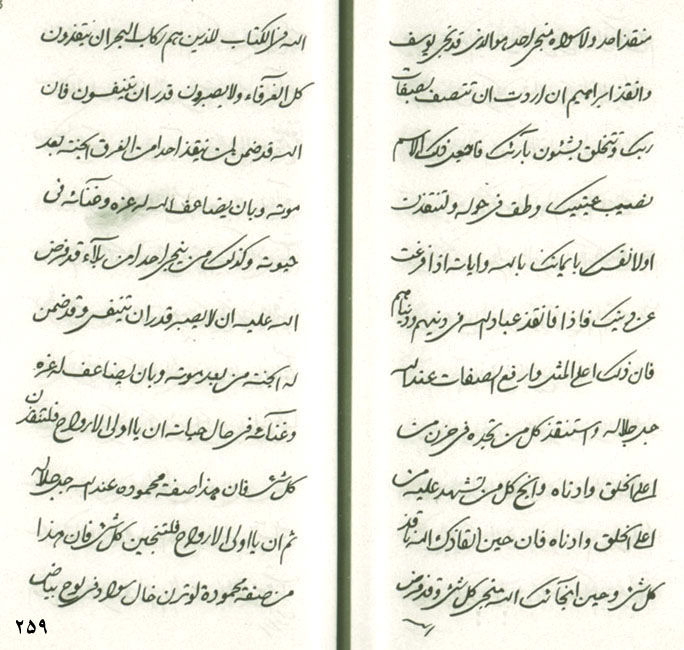 منقذ احد ولا سواه منجی احد هو الذی قد نجی یوسف
وانقذ ابراهیم ان اردت ان تتصف بصفات
ربک وتتخلق بشئون بارئک فاجعل ذلک الاسم
نصیب عینیک وطف فی حوله ولتنقذن
اولا نفسک بایمانک بالله وایاته اذا فرغت
عن دینک فاذا فانقذ عباد الله فی دینهم ودنیاهم
فان ذلک اعلی المثل وارفع الصفات عند الله
جل جلاله واستنقذ کل من تجده فی حزن من
اعلی الخلق وادناه وانج کل من تشهد علیه من
اعلی الخلق وادناه فان حین انقاذک الله ناقذ
کل شیء وحین انجائک الله منجی کل شیء وقد فرض
الله
الله فی الکتاب للذین هم رکاب البحر ان ینقذون
کل الغرقاء ولا یصبرون قدر ان یتنفسون فان
الله قد ضمن لمن ینقذ احدا من الغرق الجنة بعد
موته وبان یضاعف الله له عزه وغنائه فی
حیوته وکذلک من ینجی احدا من بلاء قد فرض
الله علیه ان لا یصبر قدر ان یتنفس وقد ضمن
له الجنة من بعد موته وبان یضاعف له عزه
وغنائه فی حال حیاته ان یا اولی الارواح فلتنقذن
کل شیء فان هذا صفة محمودة عند الله جل جلاله
ثم ان یا اولی الارواح فلتنجین کل شیء فان هذا
من صفة محمودة لو ترن خال سواد فی لوح بیاض
۲۵۹